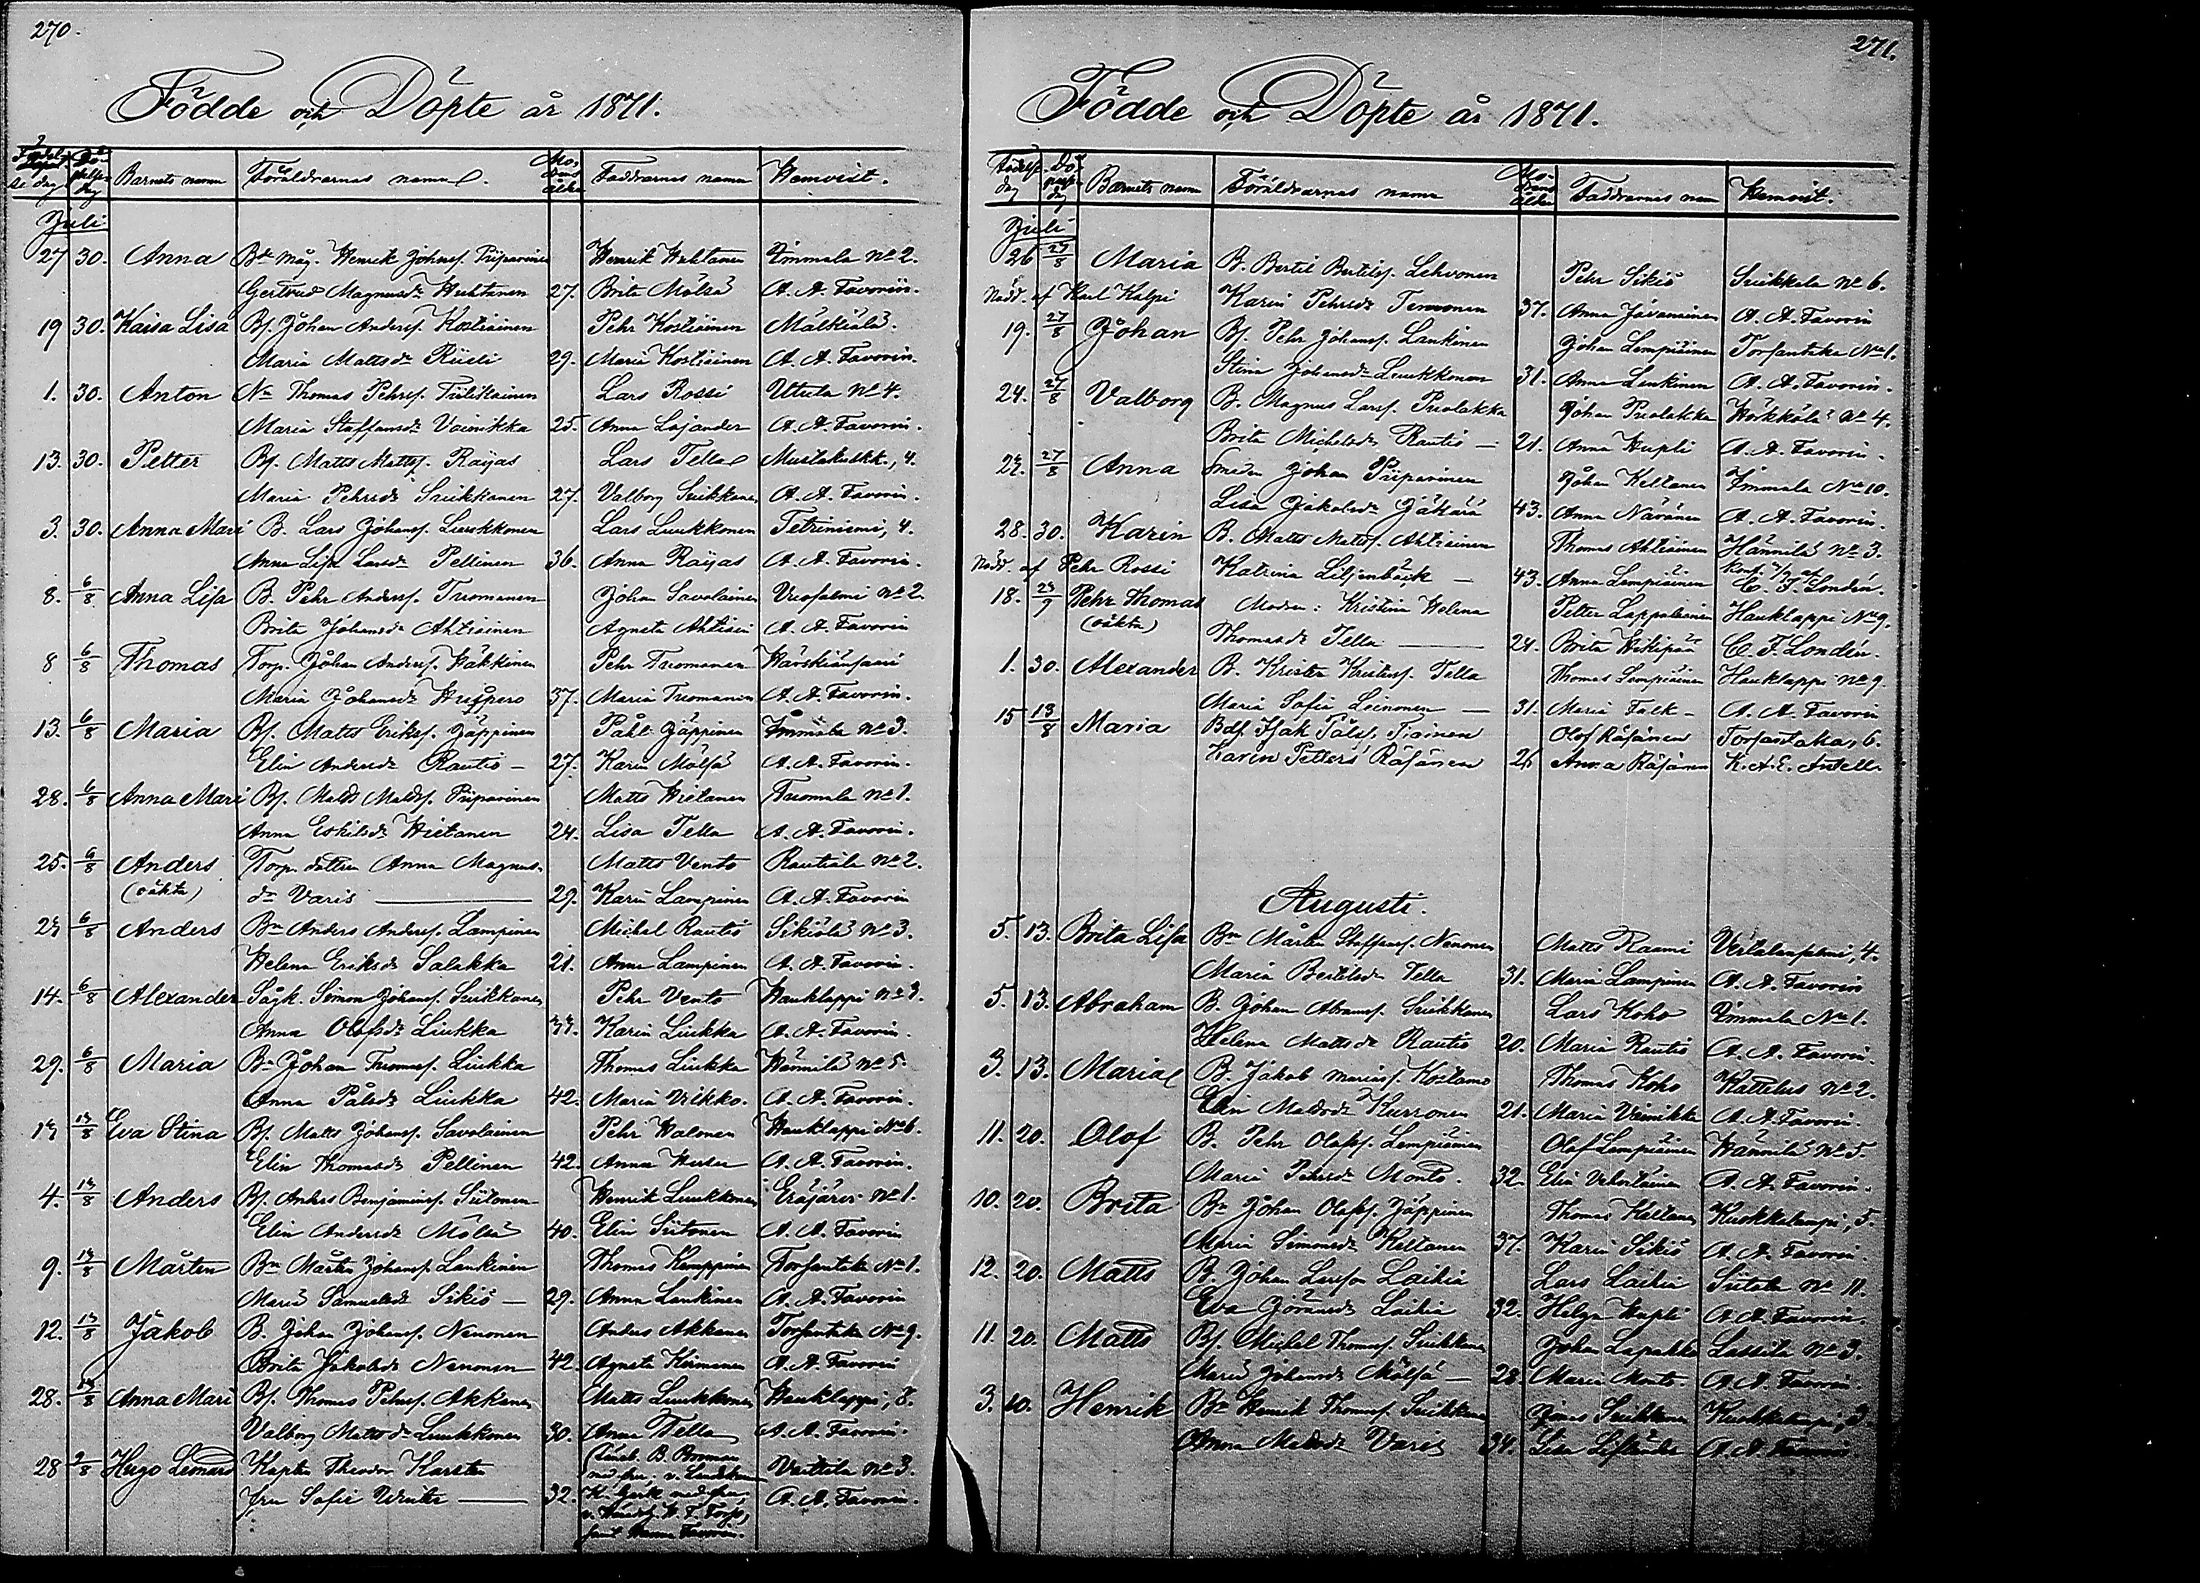 270.
Födde och Döpte år 1871.
Barnets namn Föräldrarnas namn. Moderns ålder Faddrarnas namn Hemvist.
Juli
27 30. Anna Bde måg. Henrik Johansf. Piiparinen Henrik Huhtanen Immala No 2.
Gertrud Magnusdr Huhtanen 27. Brita Mölsä A. A. Favorin.
19 30. Kaisa Lisa Bf. Johan Andersf. Kostiainen Pehr Kostiainen Mälkiälä.
Maria Mattsdr Riisti 29. Maria Kostiainen A. A. Favorin.
1. 30. Anton Thomas Pehrsf. Tiilikainen Lars Rossi Utula No 4.
Maria Staffansdr Vainikka 25. Anna Lojander A. A. Favorin.
13. 30. Petter Bf. Matts Mattsf. Rajas Lars Tella Mustakulkk., 4.
Maria Pehrsdr Suikkanen 27. Valborg Suikkanen A. A. Favorin.
3. 30. Anna Mari B. Lars Johansf. Luukkonen Lars Luukkonen Tetriniemi, 4.
Anna Lisa Larsdr Pellinen 36. Anna Rajas A. A. Favorin.
8. 6/8 Anna Lisa B. Pehr Andersf. Tuomanen Johan Savolainen Vuosalmi No 2.
Brita Johansdr Ahtiainen Agneta Ahtiain A. A. Favorin
8 6/8 Thomas Torp. Johan Andersf. Häkkinen Pehr Tuomanen Härskiänsaari
Maria Johansdr 37. Maria Tuomanen A. A. Favorin.
13. 6/8 Maria Bf. Matts Eriksf. Jäppinen Påhl Jäppinen Immala No 3.
Elin Andersdr Rautio - 27. Karin Mölsä A. A. Favorin.
28. 6/8 Anna Mari Bf. Matts Mattsf. Piiparinen Matts Hietanen Tuomala No 1.
Anna Eskilsdr Hietanen 24. Lisa Tella A. A. Favorin.
25. 6/8 Anders Torp. dottren Anna Magnus- Matts Vento Rautiala No 2.
(oäkta) dr Varis 29. Karin Lampinen A. A. Favorin
24 6/8 Anders Bn Anders Andersf. Lampinen Michel Rautio Sikiölä No 3.
Helena Eriksdr Salakka 21. Anna Lampinen A. A. Favorin.
14. 6/8 Alexander Sågk. Simon Johansf. Suikkanen Pehr Vento Hauklappi No 3.
Anna Olofsdr Liukka 33. Karin Liukka A. A. Favorin.
29. 6/8 Maria Bn Johan Thomasf. Liukka Thomas Liukka Hännilä No 5.
Anna Pålsdr Liukka 42. Maria Vilkko. A. A. Favorin.
13 13/8 Eva Stina Bf. Matts Johansf. Savolainen Pehr Halonen Hauklappi No 6.
Elin Thomasdr Pellinen 42. Anna A. A. Favorin.
4. 13/8 Anders Bf. Anders Benjaminsf. Siitonen Henrik Luukkonen Eräjärvi No 1.
Elin Andersdr Mölsä 40. Elin Siitonen A. A. Favorin
9. 13/8 Mårten Bn Mårten Johansf. Lankinen Thomas Kemppinen Torsantaka No 1.
Maria Samuelsdr Sikiö - 29. Anna Lankinen A. A. Favorin
12. 13/8 Jakob B. Johan Johansf. Nenonen Anders Akkanen Torsantaka No 9.
Brita Jakobsdr Nenonen 42. Agneta A. A. Favorin
28. 13/8 Anna Mari Bf. Thomas Pehrsf. Akkanen Matts Luukkonen Hauklappi, 8.
Valborg Mattsdr Luukkonen 30. Anna Tella A. A. Favorin.
28 2/8 Hugo Leonard Kapten Theodor Karsten B. Vaittila No 3.
fru Sofie 32. A. A. Favorin.
samt Favorin.
271.
Födde och Döpte år 1871.
Födelsedag Döpelsedag Barnets namn Föräldrarnas namn Moderns ålder Faddrarnas namn Hemvist.
Juli
26 27/8 Maria B. Bertil Bertilsf. Lehvonen Pehr Sikiö Suikkala No 6.
Nöddöpt af Karl Kolpi Karin Pehrsdr Termonen 37. Anna Javanainen A. A. Favorin
19. 27/8 Johan Bf. Pehr Johansf. Lankinen Johan Lempiäinen Torsantaka No 1.
Stina Johansdr Luukkonen 31. Anna Lankinen A. A. Favorin.
24. 27/8 Valborg B. Magnus Larsf. Puolakka Johan Puolakka Kärkkölä No 4.
Brita Michelsdr Rautio - 21. Anna Hupli A. A. Favorin.
22. 27/8 Anna Smeden Johan Piiparinen Johan Keltanen Immala No 10.
Lisa Jakobsdr Jäkärä 43. Anna Näränen A. A. Favorin.
28. 30. Karin B. Matts Mattsf. Ahtiainen Thomas Ahtiainen Hännilä No 3.
Nödd. af Pehr Rossi Katrina Liljenbäck - 43. Anna Lempiäinen C. F. Londén.
18. 24/9 Pehr Thomas Modren: Kristina Helena Petter Lappalainen Hauklappi No 9.
(oäkta) Thomasdr Tella 24. Brita Hikipää C. F. Londén.
1. 30. Alexander B. Krister Kristersf. Tella Thomas Lempiäinen Hauklappi No 9.
Maria Sofia Leinonen - 31. Maria Falk - A. A. Favorin
15 13/8 Maria Bdf. Isak Påls. Tiainen Olof Räsänen Torsantaka, 6.
Karin Petters Räsänen 26 Anna Räsänen K. A. E. Antell.
Augusti.
5. 13. Brita Lisa Bn Mårten Staffansf. Nenonen Matts Raami Vertalanpelmi, 4.
Maria Bertilsdr Tella 31. Maria Lampinen A. A. Favorin
5. 13. Abraham B. Johan Abramsf. Suikkanen Lars Koho Immala No 1.
Helena Mattsdr Rautio 20. Maria Rautio A. A. Favorin.
3. 13. Maria B. Jakob Mariasf. Kostamo Thomas Koho Kattelus No 2.
Elin Mattsdr Kurronen 21. Maria Vainikka A. A. Favorin.
11. 20. Olof B. Pehr Olofsf. Lempiäinen Olof Lempiäinen Hännilä No 5.
Maria Pehrsdr Monto. 32. Elin A. A. Favorin.
10. 20. Brita Bn Johan Olofsf. Jäppinen Thomas Keltanen Kuokkalampi, 5.
Maria Simonsdr Keltanen 37. Karin Sikiö A. A. Favorin.
12. 20. Matts B. Johan Larsson Laikia Lars Laikia Siitola No 11.
Eva Göransdr Laikia 32. Helga Hupli A. A. Favorin.
11. 20. Matts Bf. Michel Thomasf. Suikkanen Johan Lapakko Lassila No 3.
Maria Johansdr Mölsä - 28 Maria Monto A. A. Favorin.
3. 10. Henrik Bn Henrik Thomasf. Suikkanen Jöns Suikkanen Kuokkalampi, 2
Anna Mattsdr Varis 34. Lisa A. A. Favorin